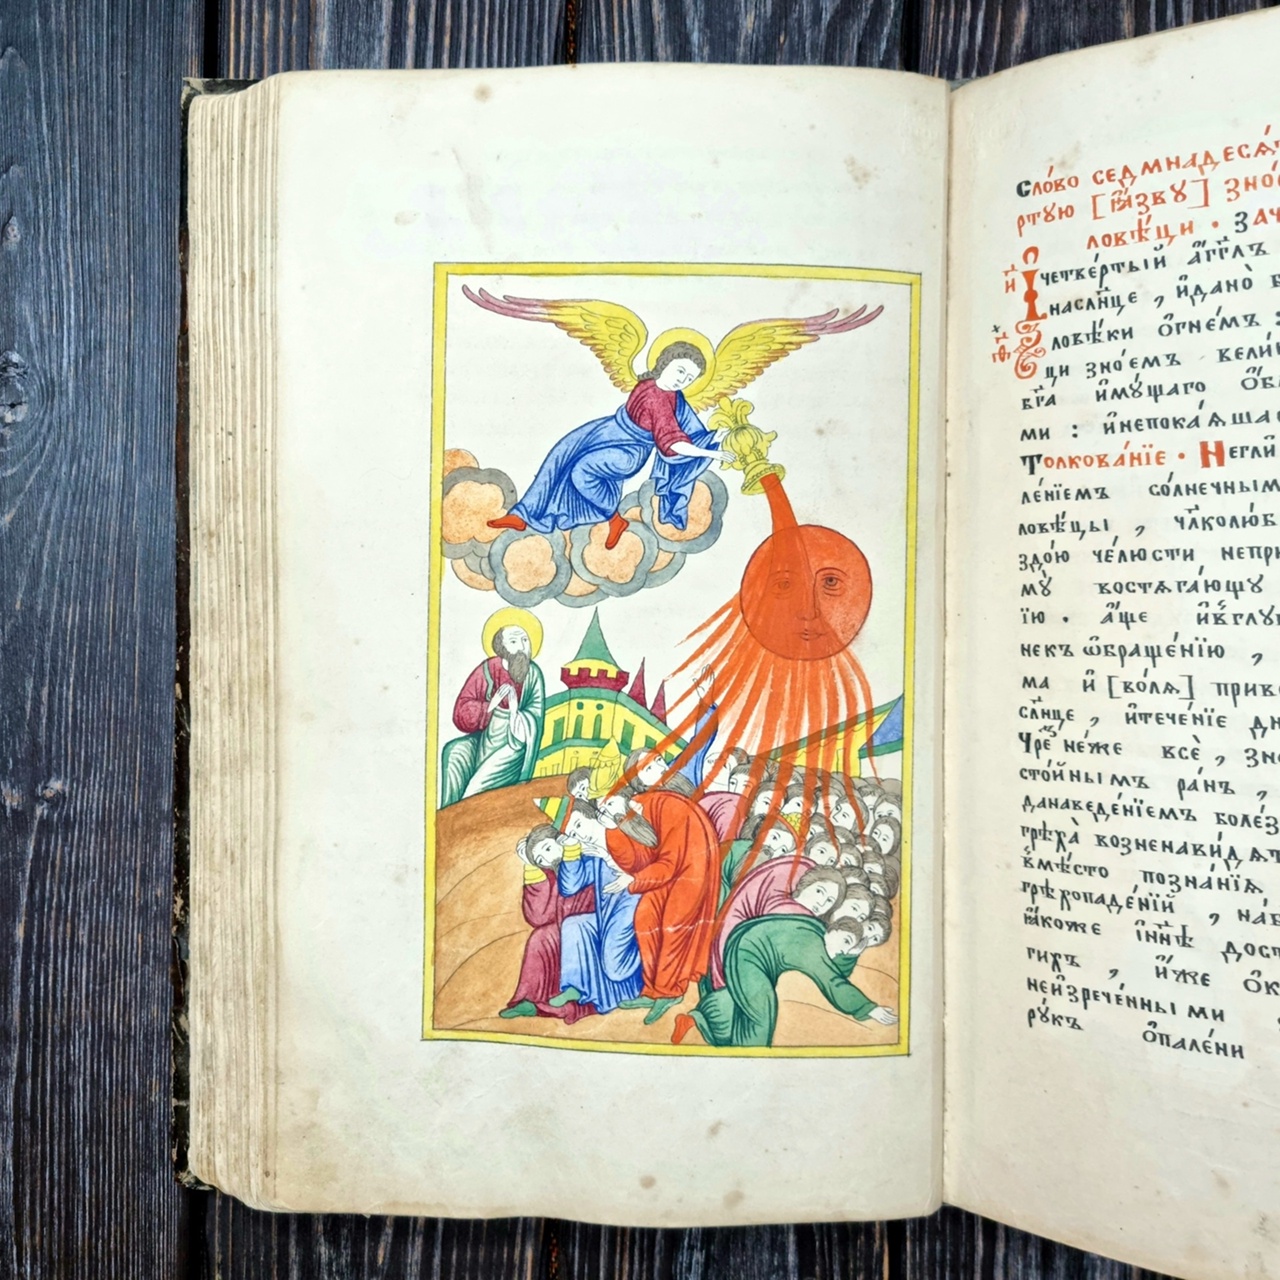 Сло́во седмнадесѧ́т
ртꙋю [ꙗ҆́звꙋ] зно́
ловѣ́цы · Зач
И҆ четве́ртый а҆́гг҃лъ
насл҃нце , и҆дано̀ б
ловѣ́ки ѻ҆гне́мъ :
ци зно́емъ вели́
бг҃а и҆мꙋ́щаго ѻ҆бл
ми : и҆непока́ѧшас
Толкова́нїе · Негли̂
ле́нїемъ со́лнечным
ловѣ́цы , чл҃колю́б
здо́ю че́люсти непри
мꙋ̀ востѧга́ющꙋ
їю . а҆́ще и҆вглꙋ
некъ ѡ҆браще́нїю ,
ма и҆ [во́лѧ] приве
сл҃нце , и҆тече́нїе дн
чре́ не́же всѐ , зно
сто́йнымъ ра́нъ ,
данаведе́нїемъ боле́з
грѣха̀ возненави́дѧт
вмѣ́сто позна́нїѧ
грѣхопаде́нїй , на́в
ꙗ҆́коже ї҆н҃нѣ дост
гихъ , и҆́же ѻ҆к
неи҆зрече́нными
рꙋ́къ ѻ҆пале́ни